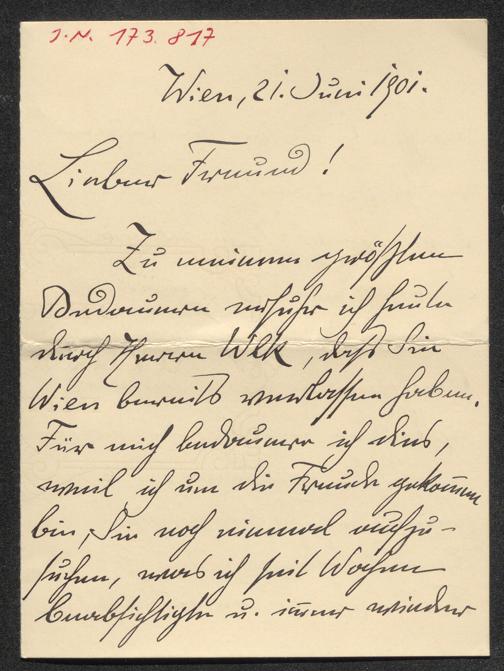 J.N. 173.817
Wien, 21. Juni 1901.
Lieber Freund!
Zu meinem größten
Bedauern erfuhr ich heute
durch Herrn Wlk, daß Sie
Wien bereits verlassen haben.
Für mich bedauere ich dies,
weil ich um die Freude gekommen
bin, Sie noch einmal aufzu-
suchen, was ich seit Wochen
beabsichtigte u. immer wieder